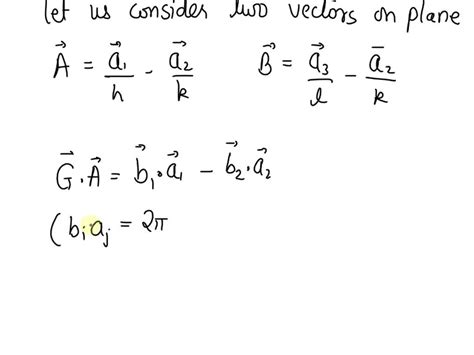 let us consider two vectors on plane
$\vec{A} = \frac{\vec{a}_1}{h} - \frac{\vec{a}_2}{k}$ $\vec{B} = \frac{\vec{a}_3}{l} - \frac{\bar{a}_2}{k}$
$\vec{G} \cdot \vec{A} = \vec{b}_1 \cdot \vec{a}_1 - \vec{b}_2 \cdot \vec{a}_2$
$(b_i a_j = 2\pi$